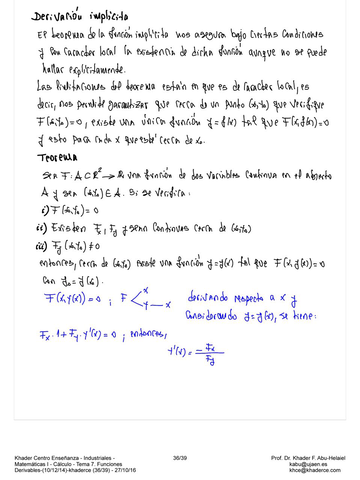 Derivación implícita
El teorema de la función implícita nos asegura bajo ciertas condiciones
y con carácter local la existencia de dicha función aunque no se puede
hallar explícitamente.
Las limitaciones del teorema están en que es de carácter local, es
decir, nos permite garantizar que cerca de un punto (x₀,y₀) que verifique
F(x₀,y₀)=0, existe una única función y=f(x) tal que F(x,f(x))=0
y esto para cada x que esté cerca de x₀.
Teorema
Sea F: A⊂ℝ² → ℝ una función de dos variables continua en el abierto
A y sea (x₀,y₀)∈A. Si se verifica:
i) F(x₀,y₀)=0
ii) Existen Fx, Fy y sean continuas cerca de (x₀,y₀)
iii) Fy(x₀,y₀)≠0
entonces, cerca de (x₀,y₀) existe una función y=y(x) tal que F(x,y(x))=0
con y₀=y(x₀).
F(x,y(x))=0 ; F < x y — x derivando respecto a x y
considerando y=y(x), se tiene:
Fx·1+Fy·y'(x)=0 ; entonces,
y'(x)= -Fx / Fy
Khader Centro Enseñanza - Industriales - 36/39 Prof. Dr. Khader F. Abu-Helaiel
Matemáticas I - Cálculo - Tema 7. Funciones kabu@ujaen.es
Derivables-(10/12/14)-khaderce (36/39) - 27/10/16 khce@khaderce.com